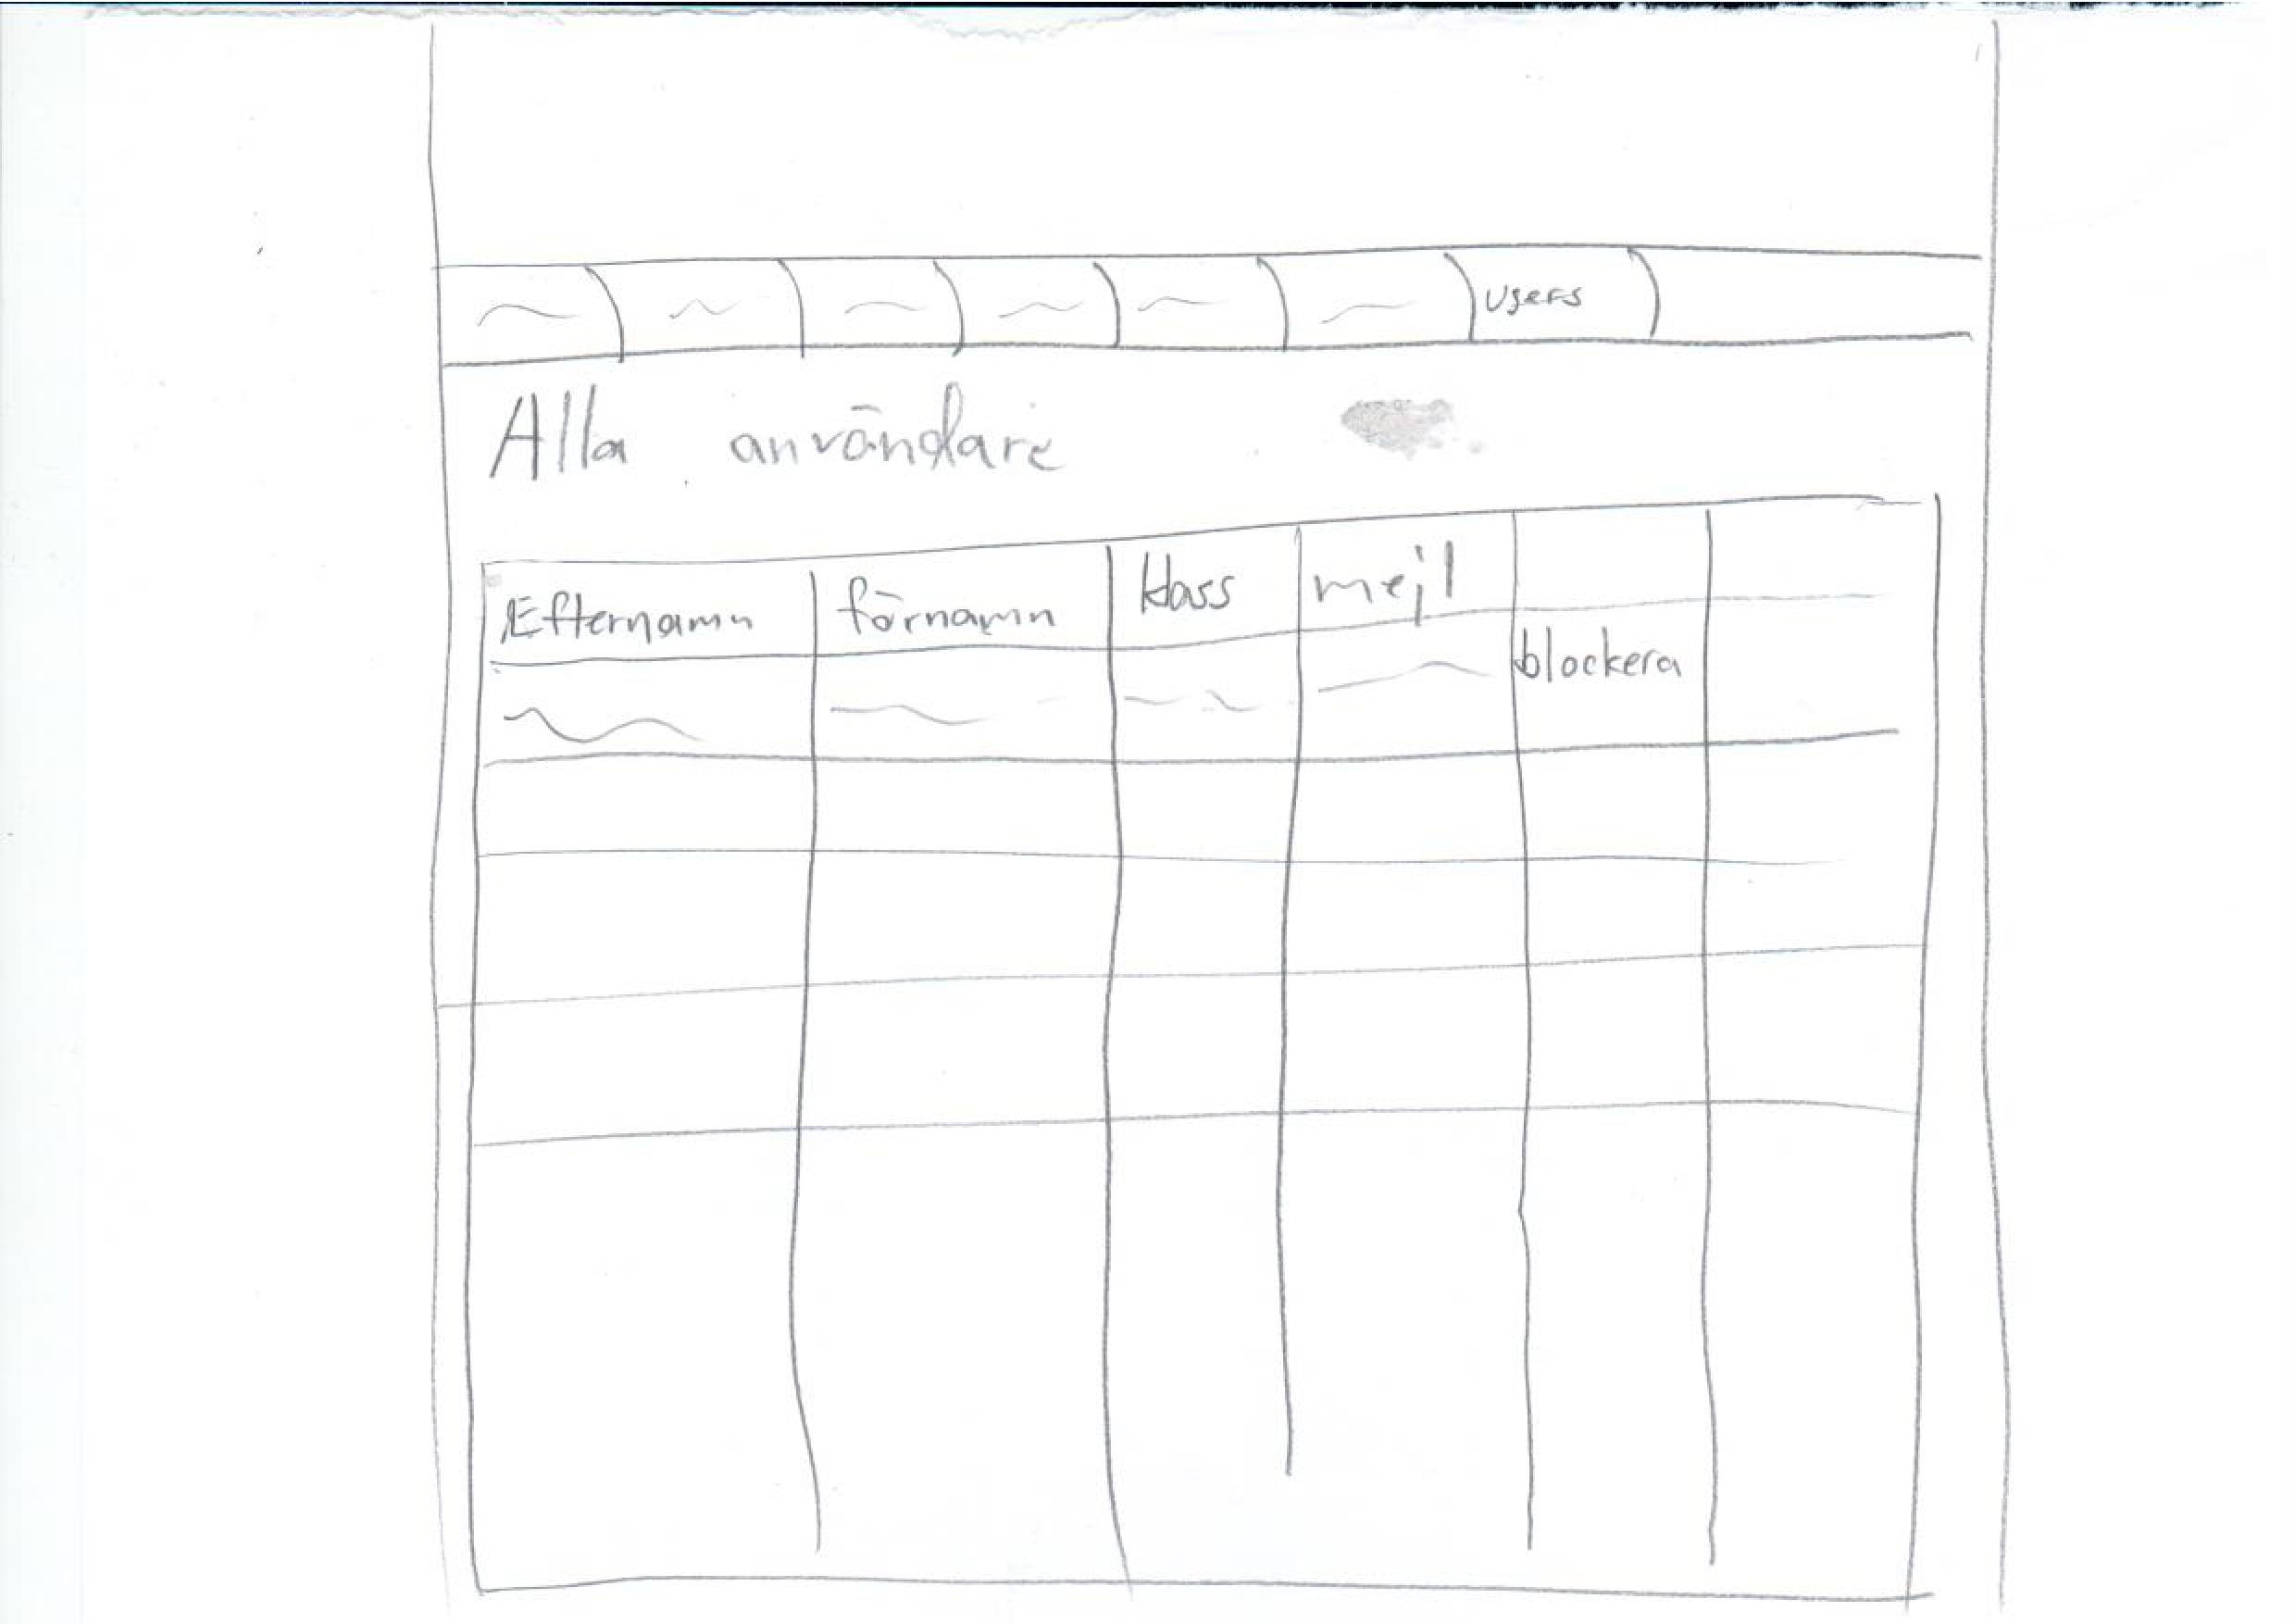 Users
Alla användare
Efternamn förnamn klass mejl
blockera